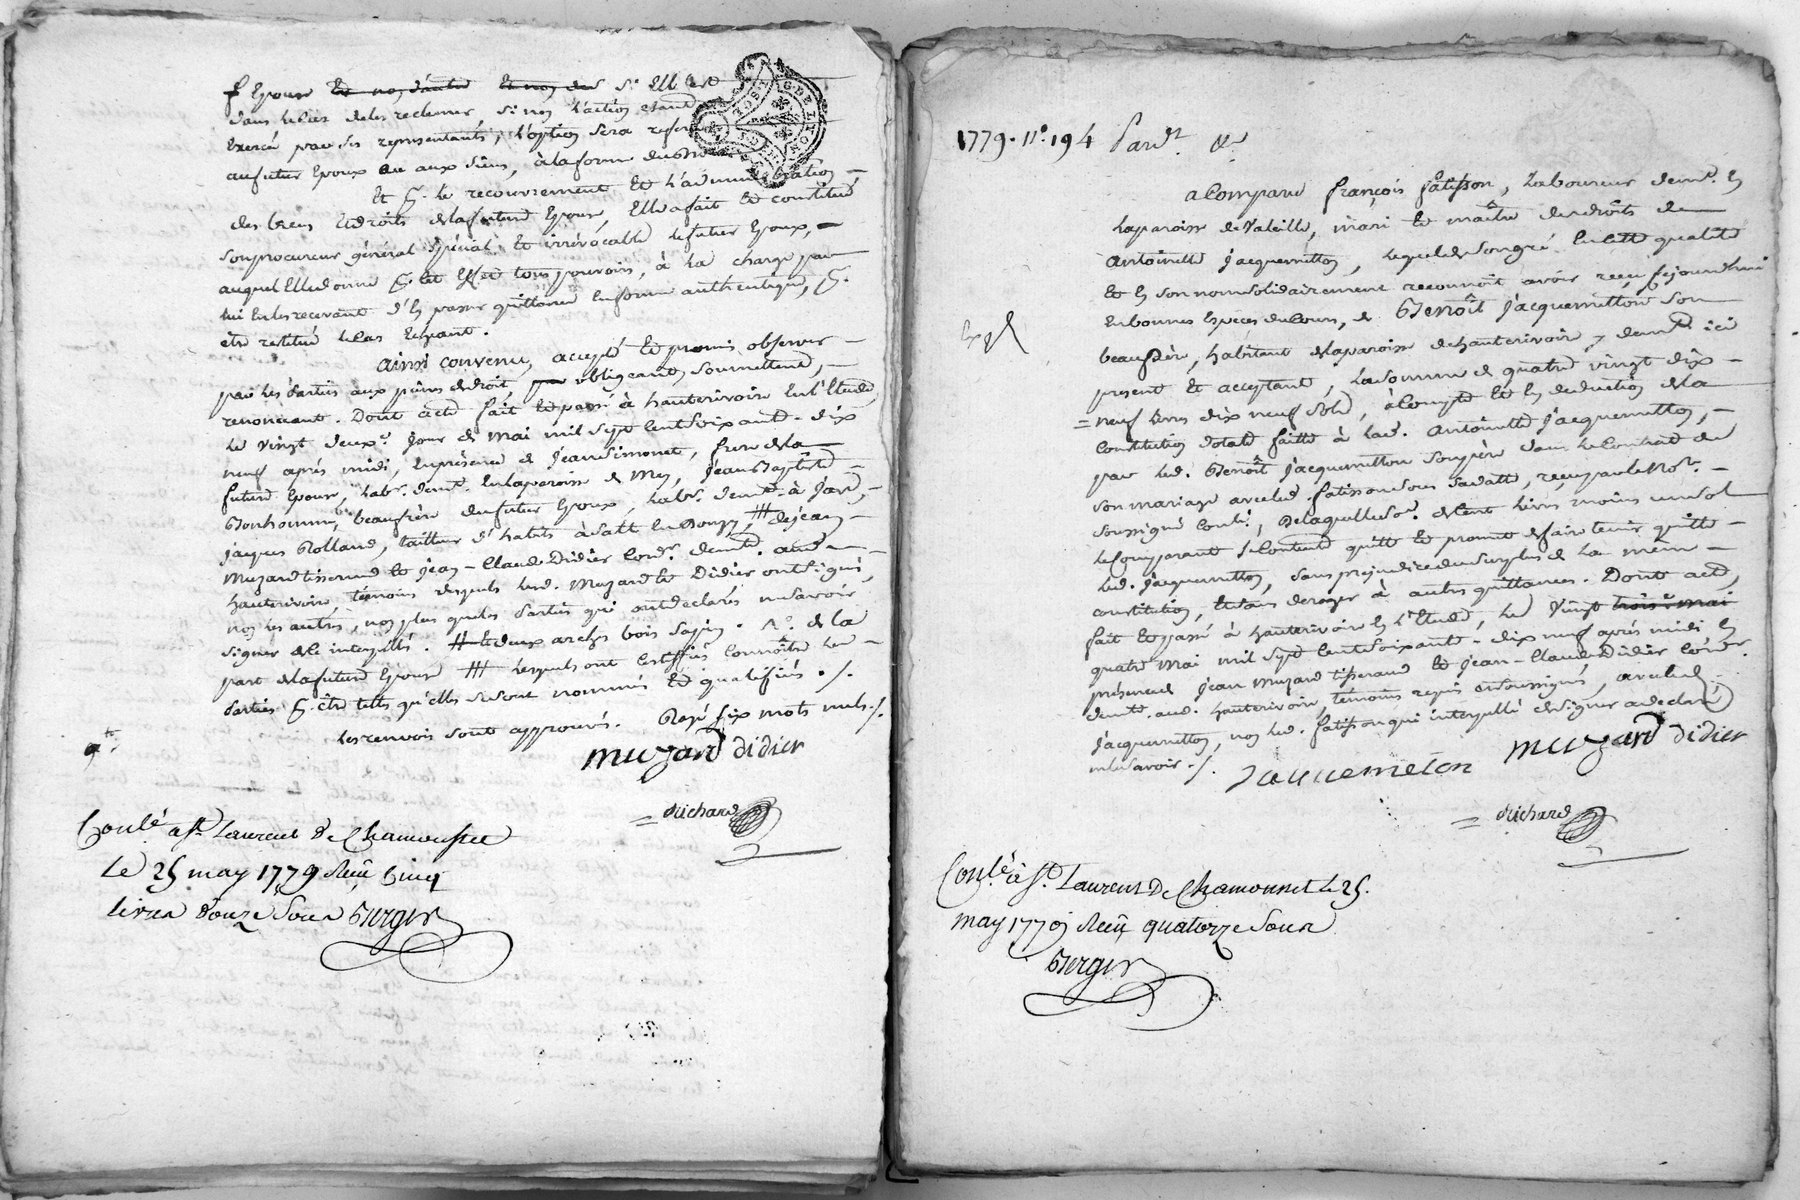 f. Epouse et non d'autre et non des si elle est
dans le cas de les reclamer, si non l'action etant
Exercé par ses representants, l'option sera reser
au futur Epoux ou aux siens, à la forme du
Et pr. le recouvrement et l'administration
des biens et droits de la future Epouse, Elle a fait et constitué
son procureur général spécial et irrévocable le futur Epoux,
auquel Elle donne pr. cet effet tous pouvoirs, à la charge par
lui en les recevant d'en passer quittance en forme authentique, pr.
etre restitué le cas echeant.
Ainsi convenu, accepté et promis observer
par les parties aux peines de droit, obligeant, soumettant,
renonceant. Dont acte fait et passé à hauterivoire en l'Etude
le vingt deuxe. jour de mai mil sept cent soixante-dix
neuf après midi, en présence de jean Simonet, frere de la
future Epouse, labr. demt. en la paroisse de Mey, jean Baptiste
Bonhomme, beaufrère du futur Epoux, labr. demt. à jard,
jacques Rolland, tailleur d'habits à Salt en Donzy, # de jean
Muzard tisserand et jean-Claude Didier cordr. demts. aud.
hauterivoire, témoins desquels lesd. Muzard et Didier ont signé,
non les autres, non plus que les parties qui ont declaré ne savoir
signer de ce interpellés. # et deux arches bois sapin. Ro. de la
part de la future Epouse # lesquels ont certiffiés connoitre les
parties pr. être telles qu'elles se sont nommées et qualiffiées ./.
les renvois sont approuvés. Rayé six mots nuls ./.
Muzard didier
= Richard
Conlé. à St. Laurent De Chamousset
Le 25 may 1779 Reçu Cinq
livres Douze Sous Berger
1779. 11e. 194 Pard. Qe.
Exp
a Comparu françois fatisson, laboureur demt. en
la paroisse de Valeille, mari et maître des droits de
Antoinette jacquemetton, lequel de son gré en cette qualité
et en son nom solidairement reconnoit avoir reçu ce jourd'hui
en bonnes Espèces du Cours, de Benoît jacquemetton son
beaufrère, habitant de la paroisse de hauterivoire, demt. ici
present et acceptant, la somme de quatre vingt dix
= neuf livres dix neuf sols, à Compte et en deduction de la
Constitution dotale faitte à lad. Antoinette jacquemetton,
par led. Benoît jacquemetton son père dans le Contrat de
son mariage avec led. fatisson sous sa datte, reçu par le Nore.
soussigné Conlé., De laquelle Se. de cent livres moins un sol
le Comparant se contente quitte et promet de faire tenir quitte
led. jacquemetton, sans prejudice du surplus de la même
constitution, et sans deroger à autres quittances. Dont acte,
fait et passé à hauterivoire en l'Etude, le vingt trois mai
quatre mai mil sept cent soixante-dix neuf après midi en
présence de jean Muzard tisserand et jean-Claude Didier cordr.
demts. aud. hauterivoire, témoins requis et soussignés, avec led.
jacquemetton, non led. fatisson qui interpellé de signer a declaré
ne le savoir ./. Jacquemeton Muzard didier
= Richard
Conlé. à St. Laurent De Chamousset le 25.
may 1779 Reçu quatorze Sous
Berger